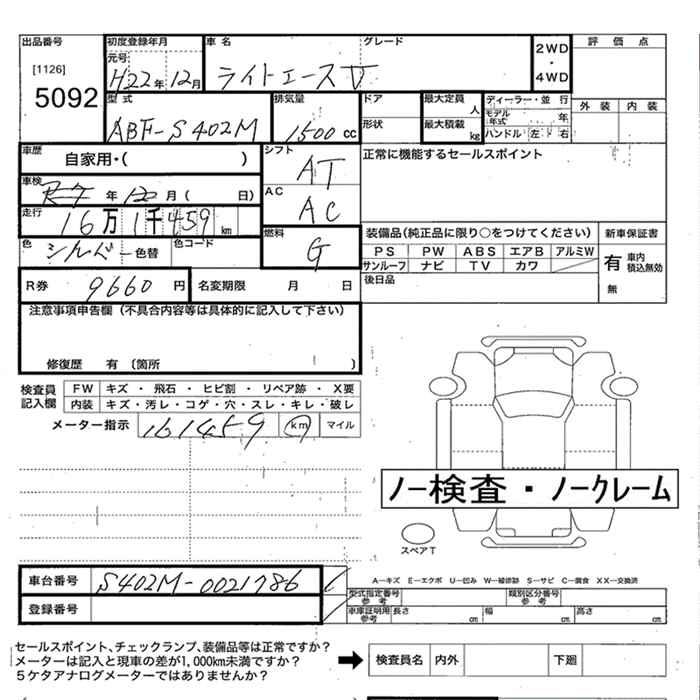 出品番号 初度登録年月 車名 グレード 2WD・4WD 評価点
[1126] 元号
5092 H22年12月 ライトエースV
型式 排気量 ドア 最大定員 ディーラー・並行 外装 内装
ABF-S402M 1500cc 形状 人 モデル年式 年
最大積載 kg ハンドル 左・右
車歴 自家用・( ) シフト AT 正常に機能するセールスポイント
車検 年 12月( ) AC AC
走行 16万1千459km 装備品(純正品に限り○をつけてください) 新車保証書
色 シルバー 色替 色コード 燃料 G PS PW ABS エアB アルミW 有 車内積込無効
サンルーフ ナビ TV カワ 無
R券 9660円 名変期限 月 日 後日品
注意事項申告欄(不具合内容等は具体的に記入して下さい)
修復歴 有(箇所 )
検査員記入欄 FW キズ・飛石・ヒビ割・リペア跡・X要
内装 キズ・汚レ・コゲ・穴・スレ・キレ・破レ
メーター指示 161459 km マイル
ノー検査・ノークレーム
スペアT
車台番号 S402M-0021786 A－キズ E－エクボ U－凹み W－補修跡 S－サビ C－腐食 XX－交換済
型式指定番号 参考 類別区分番号 参考
登録番号 車庫証明用参考 長さ cm 幅 cm 高さ cm
セールスポイント、チェックランプ、装備品等は正常ですか?
メーターは記入と現車の差が1,000km未満ですか? 検査員名 内外 下廻
5ケタアナログメーターではありませんか?